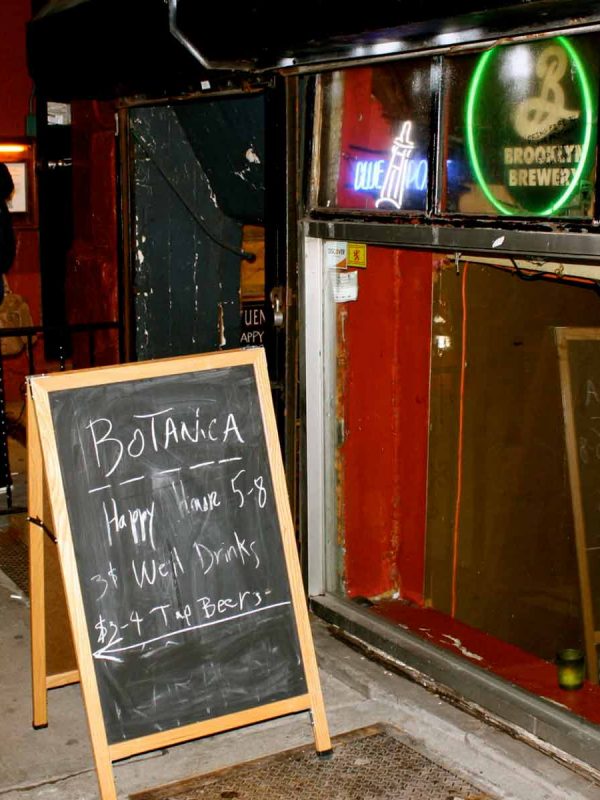 BOTANICA
Happy Houre 5-8
3$ Well Drinks
$3-4 Tap Beers
BLUE PO
B
BROOKLYN
BREWERY
DISCOVER
UEN
APPY